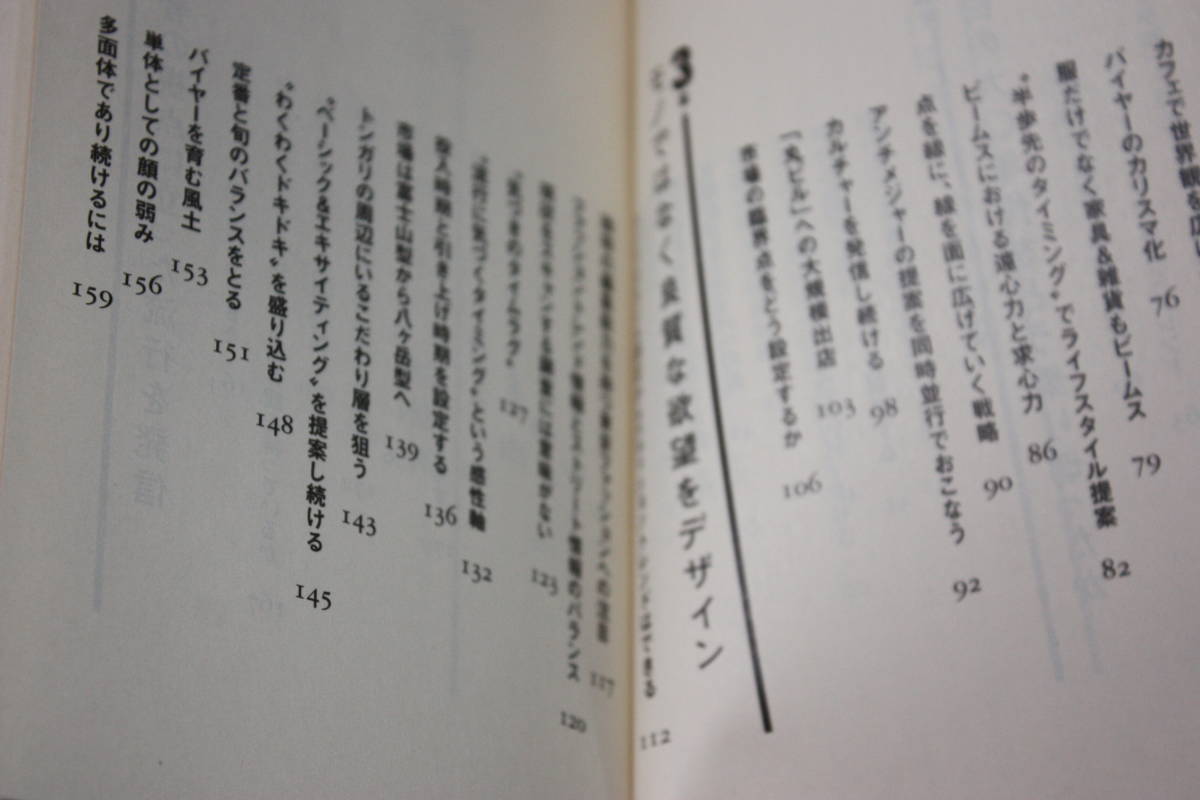 カフェで世界観を広
バイヤーのカリスマ化 76
服だけでなく家具&雑貨もビームス 79
“半歩先のタイミング”でライフスタイル提案 82
ビームスにおける遠心力と求心力 86
点を線に、線を面に広げていく戦略 90
アンチメジャーの提案を同時並行でおこなう 92
カルチャーを発信し続ける 98
「丸ビル」への大規模出店 103
市場の臨界点をどう設定するか 106
3.
モノではなく良質な欲望をデザイン
112
117
ファンダメントレンド情報とストリート情報のバランス 120
123
“気づきのタイムラグ” 127
“流行に気づくタイミング”という感性軸 132
投入時期と引き上げ時期を設定する 136
市場は富士山型から八ヶ岳型へ 139
トンガリの周辺にいるこだわり層を狙う 143
“ベーシック&エキサイティング”を提案し続ける 145
“わくわくドキドキ”を盛り込む 148
定番と旬のバランスをとる 151
バイヤーを育む風土 153
単体としての顔の弱み 156
多面体であり続けるには 159